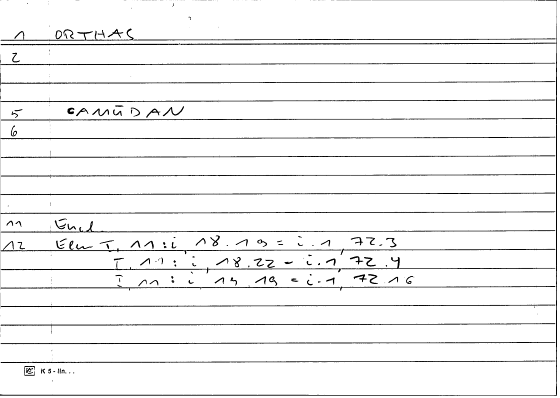 1 ORTHAS
2
5 GAMŪDAN
6
11 Encl.
12 Elam T. 11 : i, 18.19 = i.1, 72.3
T. 11 : i, 18.22 = i.1, 72.4
T. 11 : i, 19.19 = i.1, 72 16
K 5 - lin. . .